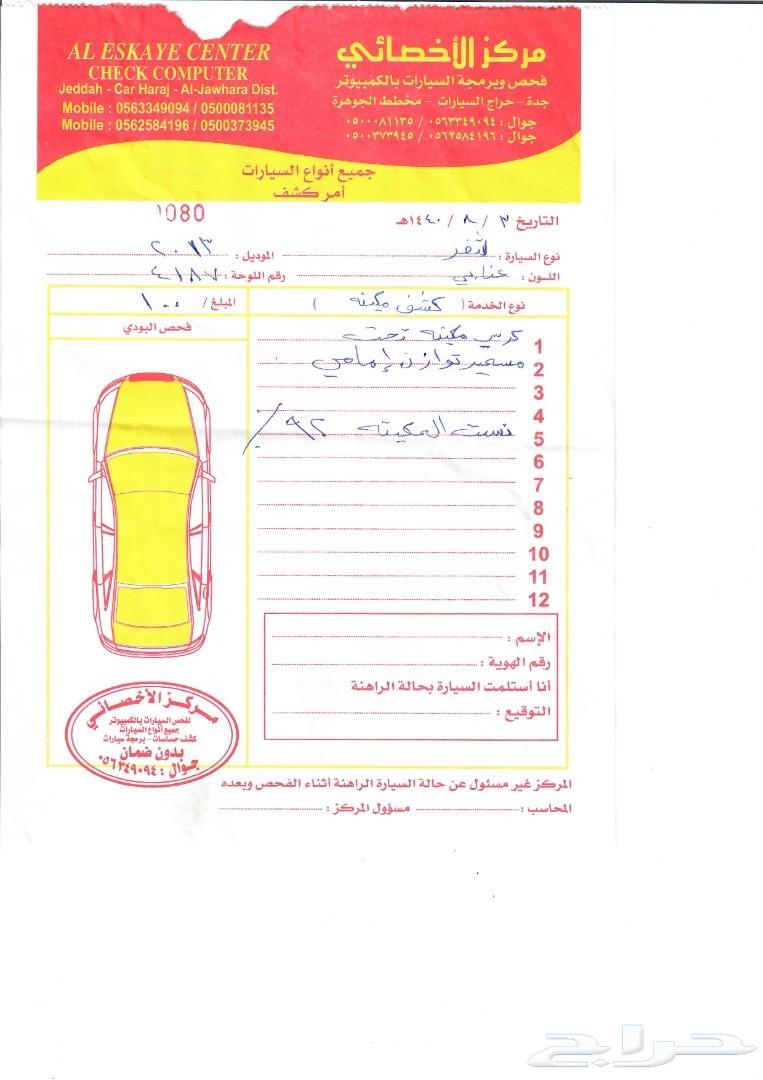 AL ESKAYE CENTER
CHECK COMPUTER
Jeddah - Car Haraj - Al-Jawhara Dist.
Mobile : 0563349094 / 0500081135
Mobile : 0562584196 / 0500373945
مركز الأخصائي
فحص وبرمجة السيارات بالكمبيوتر
جدة - حراج السيارات - مخطط الجوهرة
جوال : ٠٥٦٣٣٤٩٠٩٤ / ٠٥٠٠٠٨١١٣٥
جوال : ٠٥٦٢٥٨٤١٩٦ / ٠٥٠٠٣٧٣٩٤٥
جميع أنواع السيارات
أمر كشف
1080
التاريخ ٣ / ٨ / ١٤٤٠هـ
نوع السيارة :
الموديل : ٢٠١٣
اللون : عنابي
رقم اللوحة : ٤١٨٧
نوع الخدمة ( كشف مكينه )
المبلغ / ١٠٠
فحص البودي
1 كرسي مكينه تحت
2 مسمير توازن إمامي
3
4
5 نسبت المكينه ٩٢ /
6
7
8
9
10
11
12
الإسم :
رقم الهوية :
أنا أستلمت السيارة بحالة الراهنة
التوقيع :
مركز الأخصائي
لفحص السيارات بالكمبيوتر
جميع أنواع السيارات
كشف حساسات - برمجة سيارات
بدون ضمان
جوال : ٠٥٦٣٤٩٠٩٤
المركز غير مسئول عن حالة السيارة الراهنة أثناء الفحص وبعده
المحاسب :
مسؤول المركز :
حراج